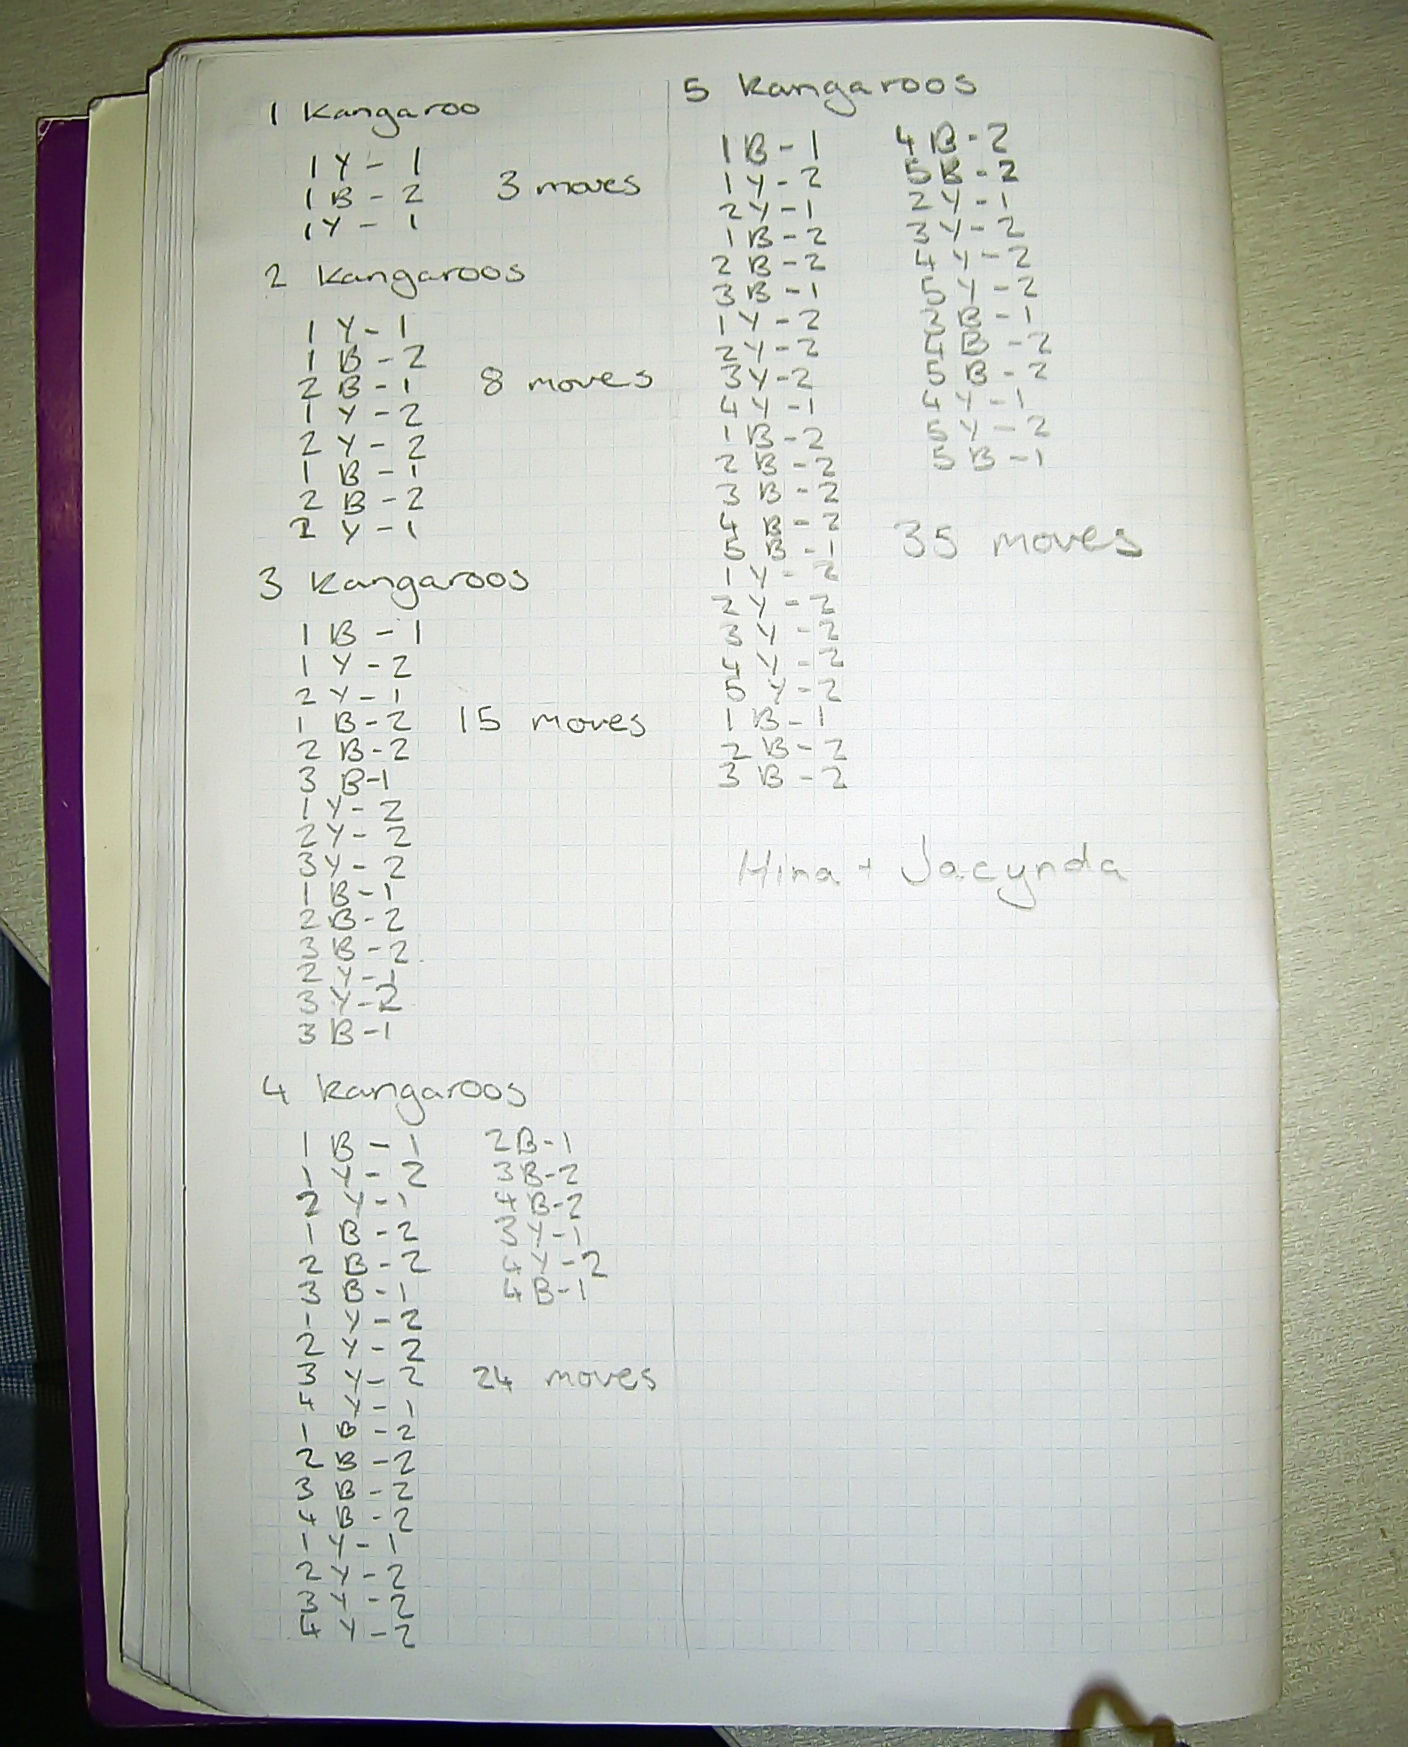 1 Kangaroo
1 Y - 1
1 B - 2
1 Y - 1
3 moves
2 Kangaroos
1 Y - 1
1 B - 2
2 B - 1
1 Y - 2
2 Y - 2
1 B - 1
2 B - 2
2 Y - 1
8 moves
3 Kangaroos
1 B - 1
1 Y - 2
2 Y - 1
1 B - 2
2 B - 2
3 B - 1
1 Y - 2
2 Y - 2
3 Y - 2
1 B - 1
2 B - 2
3 B - 2
2 Y - 1
3 Y - 2
3 B - 1
15 moves
4 Kangaroos
1 B - 1
1 Y - 2
2 Y - 1
1 B - 2
2 B - 2
3 B - 1
1 Y - 2
2 Y - 2
3 Y - 2
4 Y - 1
1 B - 2
2 B - 2
3 B - 2
4 B - 2
1 Y - 1
2 Y - 2
3 Y - 2
4 Y - 2
2 B - 1
3 B - 2
4 B - 2
3 Y - 1
4 Y - 2
4 B - 1
24 moves
5 Kangaroos
1 B - 1
1 Y - 2
2 Y - 1
1 B - 2
2 B - 2
3 B - 1
1 Y - 2
2 Y - 2
3 Y - 2
4 Y - 1
1 B - 2
2 B - 2
3 B - 2
4 B - 2
5 B - 1
1 Y - 2
2 Y - 2
3 Y - 2
4 Y - 2
5 Y - 2
1 B - 1
2 B - 2
3 B - 2
4 B - 2
5 B - 2
2 Y - 1
3 Y - 2
4 Y - 2
5 Y - 2
3 B - 1
4 B - 2
5 B - 2
4 Y - 1
5 Y - 2
5 B - 1
35 moves
Hina + Jacynda